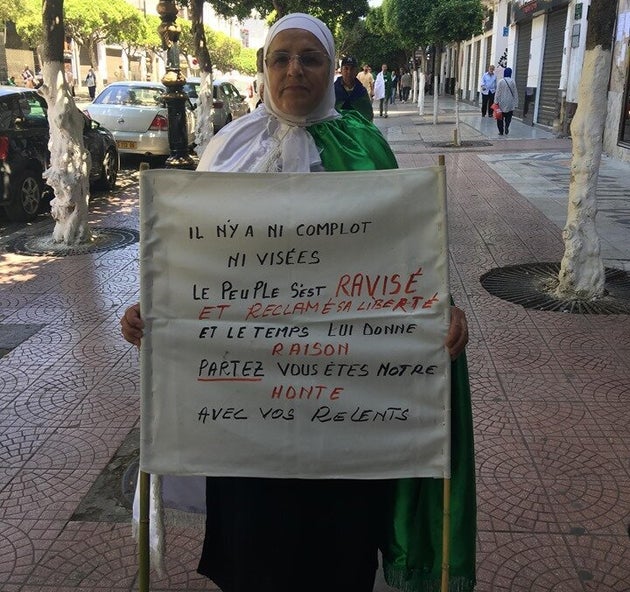 IL N'Y A NI COMPLOT
NI VISÉES
LE PEUPLE S'EST RAVISÉ
ET RECLAME SA LIBERTÉ
ET LE TEMPS LUI DONNE
RAISON
PARTEZ VOUS ÊTES NOTRE
HONTE
AVEC VOS RELENTS